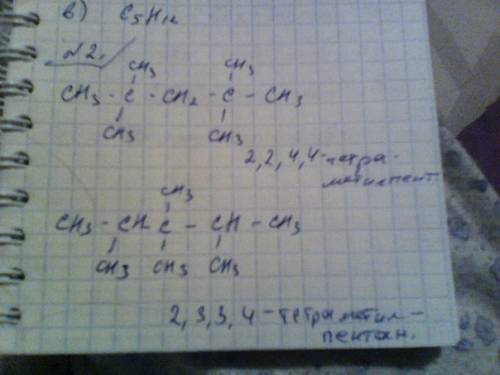 в) C5H12
№2.
CH3 CH3
CH3 - C - CH2 - C - CH3
CH3 CH3
2,2,4,4-тетра-
метилпент
CH3
CH3 - CH C - CH - CH3
CH3 CH3 CH3
2,3,3,4-тетраметил-
пентан.